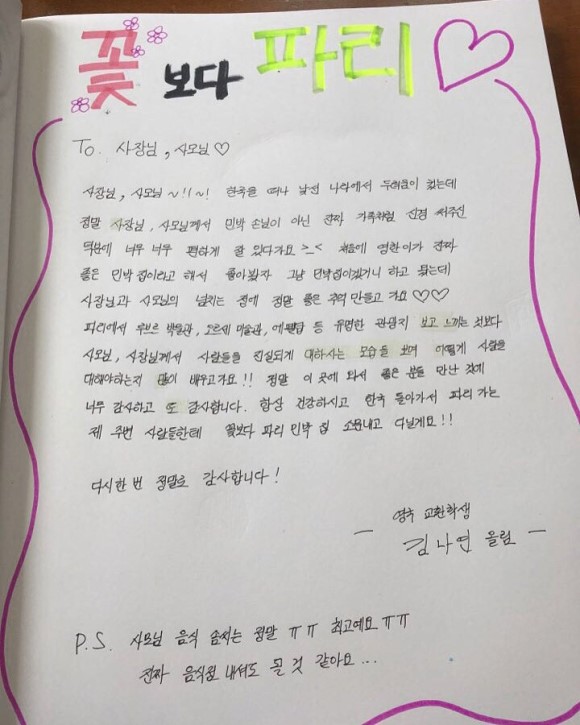 꽃보다 파리
To. 사장님, 사모님♡
사장님, 사모님~!!~! 한국을 떠나 낯선 나라에서 두려움이 컸는데
정말 사장님, 사모님께서 민박 손님이 아닌 진짜 가족처럼 신경 써주신
덕분에 너무 너무 편하게 잘 있다가요 >_< 처음에 영환이가 진짜
좋은 민박집이라고 해서 좋아봤자 그냥 민박집이겠거니 하고 왔는데
사장님과 사모님의 넘치는 정에 정말 좋은 추억 만들고 가요♡♡
파리에서 루브르 박물관, 오르세 미술관, 에펠탑 등 유명한 관광지 보고 느끼는 것보다
사모님, 사장님께서 사람들을 진실되게 대하시는 모습들 보며 어떻게 사람을
대해야하는지 많이 배우고가요!! 정말 이 곳에 와서 좋은 분들 만난 것에
너무 감사하고 또 감사합니다. 항상 건강하시고 한국 돌아가서 파리 가는
제 주변 사람들한테 꽃보다 파리 민박 집 소문내고 다닐게요!!
다시한 번 정말로 감사합니다!
- 영국 교환학생
김나연 올림 -
P.S. 사모님 음식 솜씨는 정말 ㅠㅠ 최고예요ㅠㅠ
진짜 음식점 내셔도 될 것 같아요...